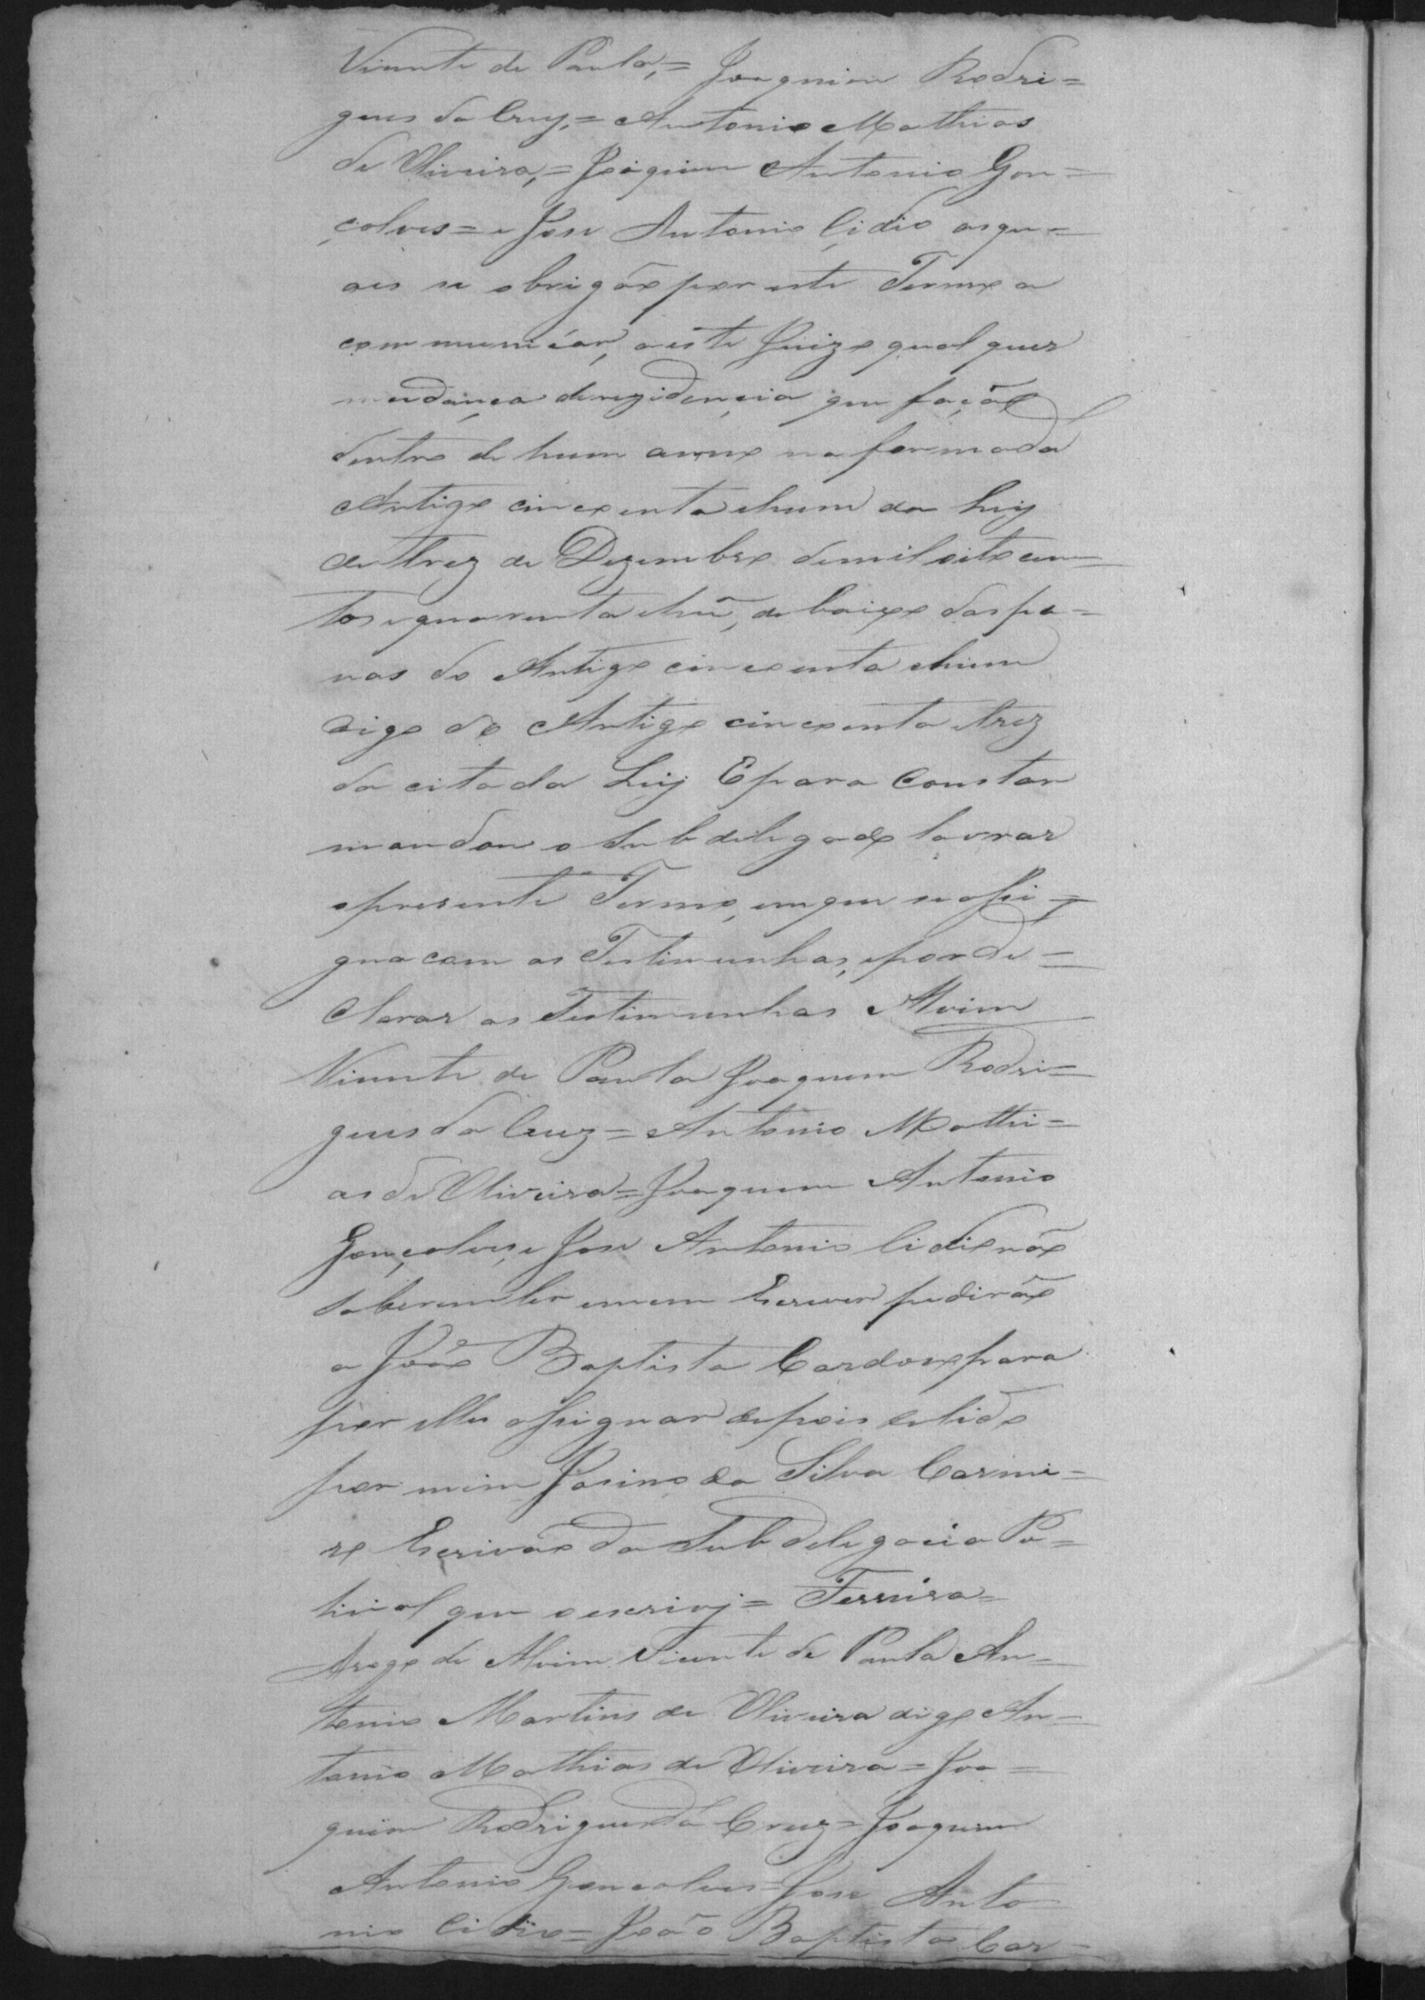 Vicente de Paula,= Joaquim Rodri=
gues da Cruz,= Antonio Mathias
de Oliveira,= Joaquim Antonio Gon=
çalves= e Jose Antonio Cidio as qu=
aes se obrigão por este Termo a
communicar, a este Juizo qual quer
mudança de rezidencia que fação
dentro de hum anno na forma do
Artigo cincoenta e hum da Ley
de trez de Dezembro de mil oito cen=
tos e quarenta e hũ, de baixo das pe=
nas do Artigo cincoenta e hum
digo do Artigo cincoenta e trez
da citada Ley E para Constar
mandou o Sub delegado lavrar
o presente Termo, em que se assi=
gna com as Testimunhas, e por de=
clarar as Testimunhas Alvim
Vicente de Paula Joaquim Rodri=
gues da Cruz= Antonio Mathi=
as de Oliveira= Joaquim Antonio
Gonçalves, e Jose Antonio Cidio não
saberem ler e nem Escrever pedirão
a João Baptista Cardoso para
por elles assignar depois de lido
por mim Josino da Silva Carnei=
ro Escrivão da Sub delegacia Po=
licial que o escrivj= Ferreira=
Arogo de Alvim Vicente de Paula An=
tonio Martins de Oliveira digo An=
tonio Mathias de Oliveira= Joa=
quim Rodrigues da Cruz= Joaquim
Antonio Goncalves= Jose Anto
nio Cidio= João Baptista Car=